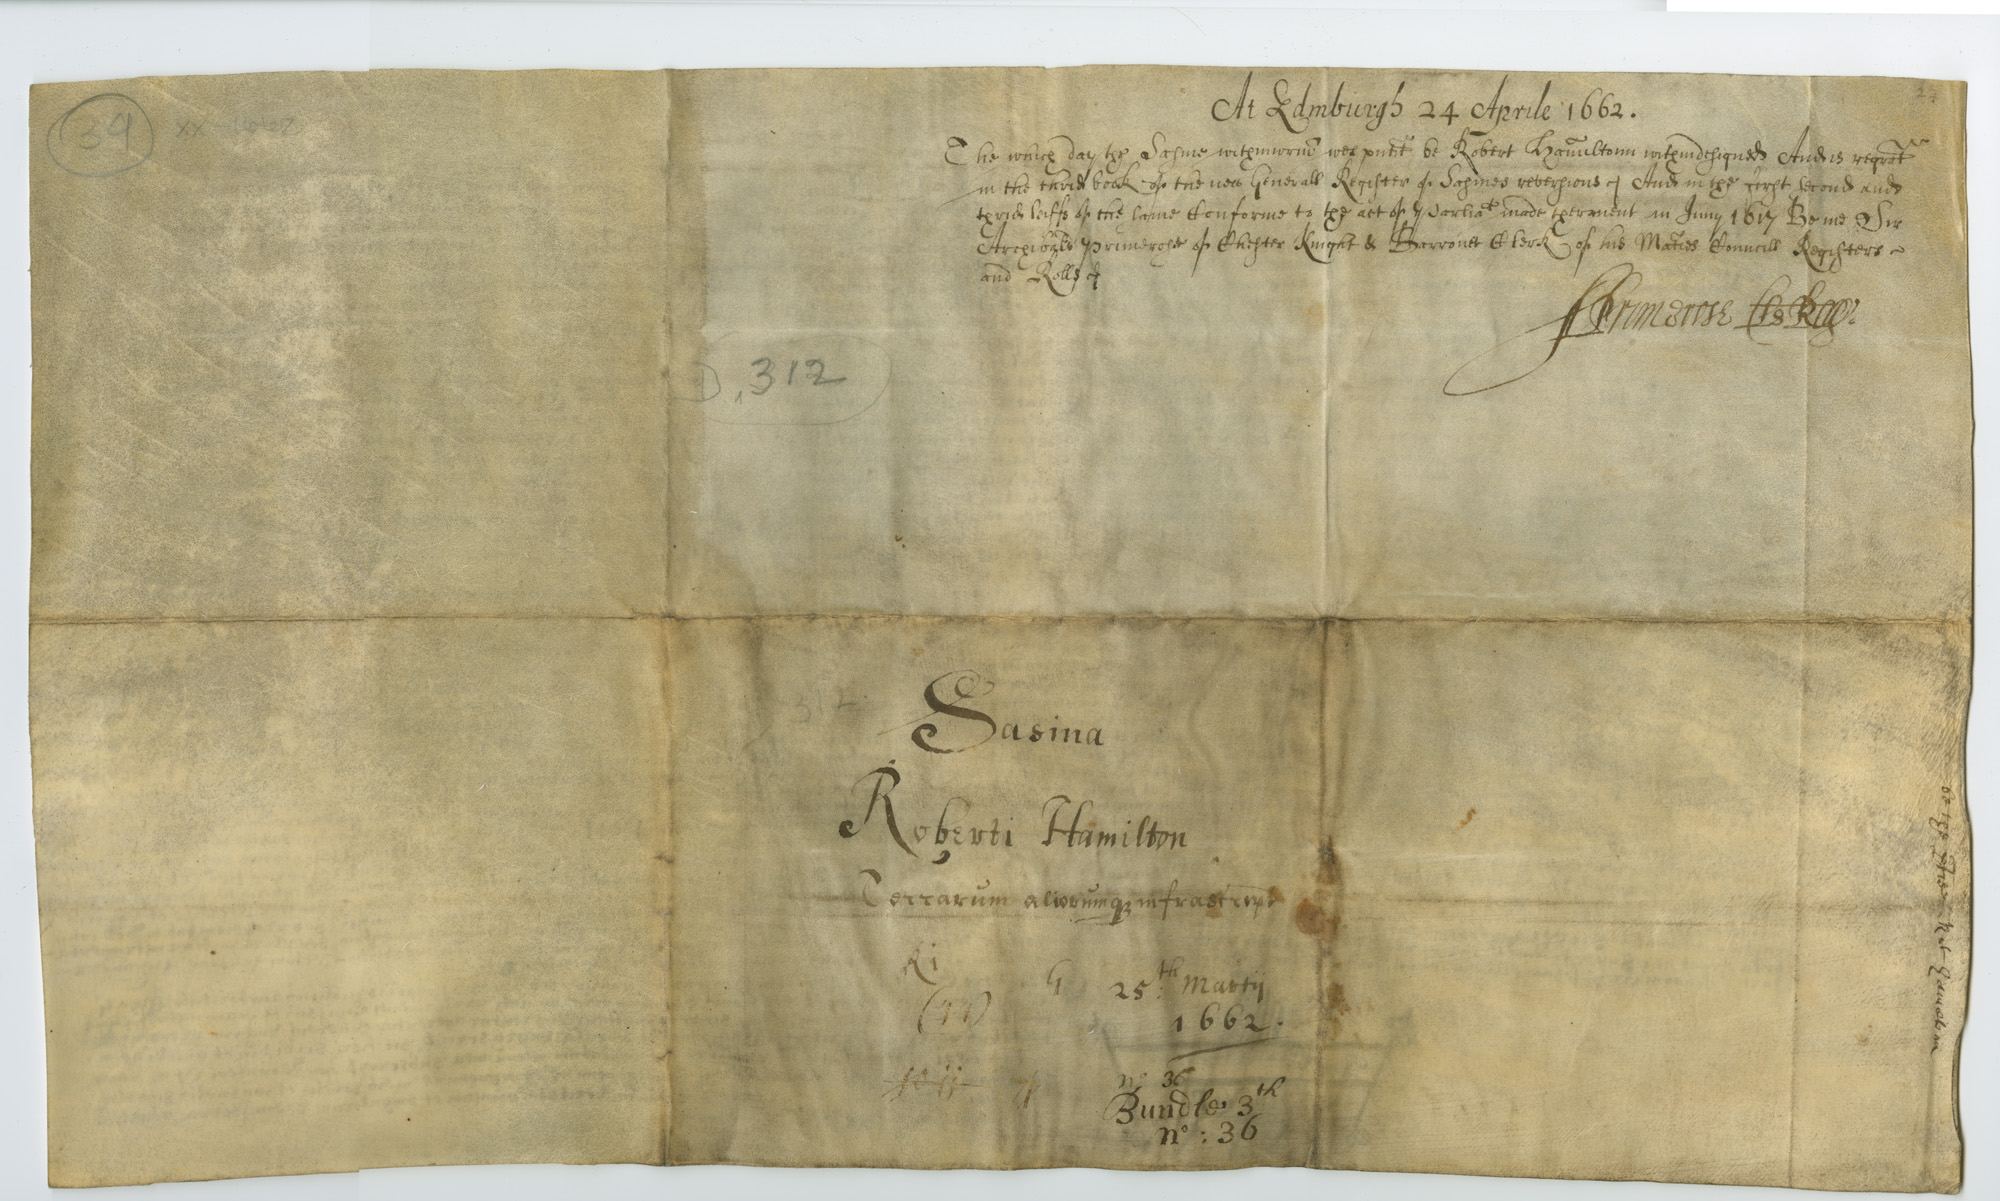 34
At Edinburgh 24 Aprile 1662.
The which day the Sasine withinwrin wes pntit be Robert Hamiltoun withindesigned And is regrat
in the third book of the new Generall Register of Sasines reversions & And in the first second and
third leiffs of the same Conforme to the act of Parliat made theranent in Juny 1617 Be me Sir
Archibald Primerose of Chester Knight & Barronet Clerk of his Maties Councill Registers
and Rolls &
Primerose Cls Reg
D, 312
312
Sasina
Roberti Hamilton
Terrarum aliorumq infrascript
25th Martij
1662.
no 36
Bundle 3th
no : 36